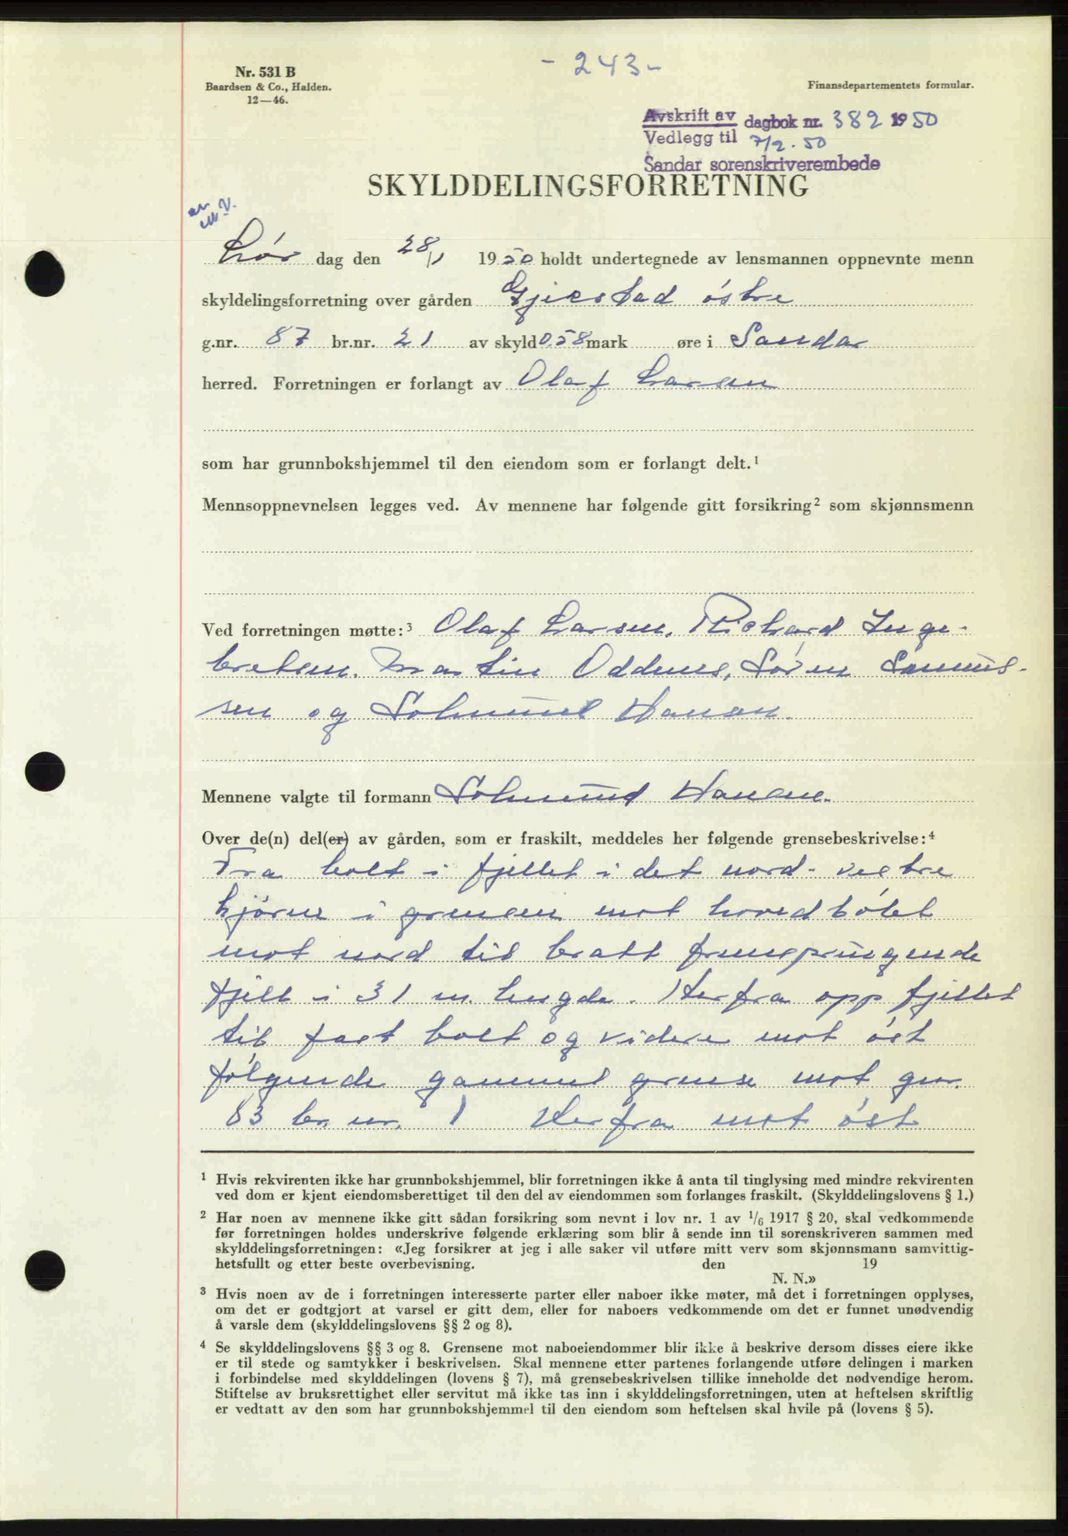 - 243 -
Nr. 531 B
Baardsen & Co., Halden.
12—46.
Finansdepartementets formular.
Avskrift av dagbok nr. 382 1950
Vedlegg til 7/2 - 50
Sandar sorenskriverembede
SKYLDDELINGSFORRETNING
Lør dag den 28/1 1950 holdt undertegnede av lensmannen oppnevnte menn
skyldelingsforretning over gården Gjerstad østre
g.nr. 87 br.nr. 21 av skyld 0,58 mark øre i Sandar
herred. Forretningen er forlangt av Olaf Larsen
som har grunnbokshjemmel til den eiendom som er forlangt delt.¹
Mennsoppnevnelsen legges ved. Av mennene har følgende gitt forsikring² som skjønnsmenn
Ved forretningen møtte:³ Olaf Larsen, Richard Inge-
bretsen. Martin Oddnes, Søren Samuel-
sen og Solmund Hansen.
Mennene valgte til formann Solmund Hansen.
Over de(n) del(er) av gården, som er fraskilt, meddeles her følgende grensebeskrivelse:⁴
Fra bolt i fjellet i det nord-vestre
hjørne i grensen mot hovedbølet
mot nord til bratt fremspringende
fjell i 31 m lengde. Herfra opp fjellet
til fast bolt og videre mot øst
følgende gammel grense mot gnr.
83 br. nr. 1 Herfra mot øst
¹ Hvis rekvirenten ikke har grunnbokshjemmel, blir forretningen ikke å anta til tinglysing med mindre rekvirenten
ved dom er kjent eiendomsberettiget til den del av eiendommen som forlanges fraskilt. (Skylddelingslovens § 1.)
² Har noen av mennene ikke gitt sådan forsikring som nevnt i lov nr. 1 av 1/6 1917 § 20, skal vedkommende
før forretningen holdes underskrive følgende erklæring som blir å sende inn til sorenskriveren sammen med
skylddelingsforretningen: «Jeg forsikrer at jeg i alle saker vil utføre mitt verv som skjønnsmann samvittig-
hetsfullt og etter beste overbevisning. den 19
N. N.»
³ Hvis noen av de i forretningen interesserte parter eller naboer ikke møter, må det i forretningen opplyses,
om det er godtgjort at varsel er gitt dem, eller for naboers vedkommende om det er funnet unødvendig
å varsle dem (skylddelingslovens §§ 2 og 8).
⁴ Se skylddelingslovens §§ 3 og 8. Grensene mot naboeiendommer blir ikke å beskrive dersom disses eiere ikke
er til stede og samtykker i beskrivelsen. Skal mennene etter partenes forlangende utføre delingen i marken
i forbindelse med skylddelingen (lovens § 7), må grensebeskrivelsen tillike inneholde det nødvendige herom.
Stiftelse av bruksrettighet eller servitut må ikke tas inn i skylddelingsforretningen, uten at heftelsen skriftlig
er vedtatt av den som har grunnbokshjemmel til den eiendom som heftelsen skal hvile på (lovens § 5).